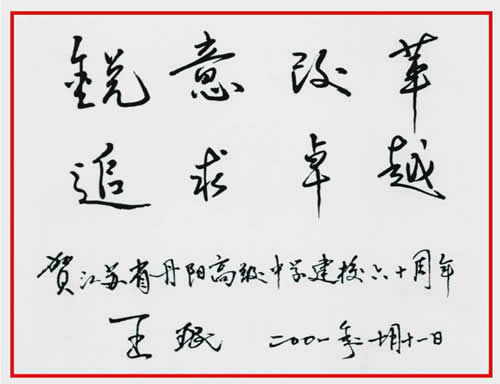 锐意改革
追求卓越
贺江苏省丹阳高级中学建校六十周年
王珉 二〇〇一年十月十一日